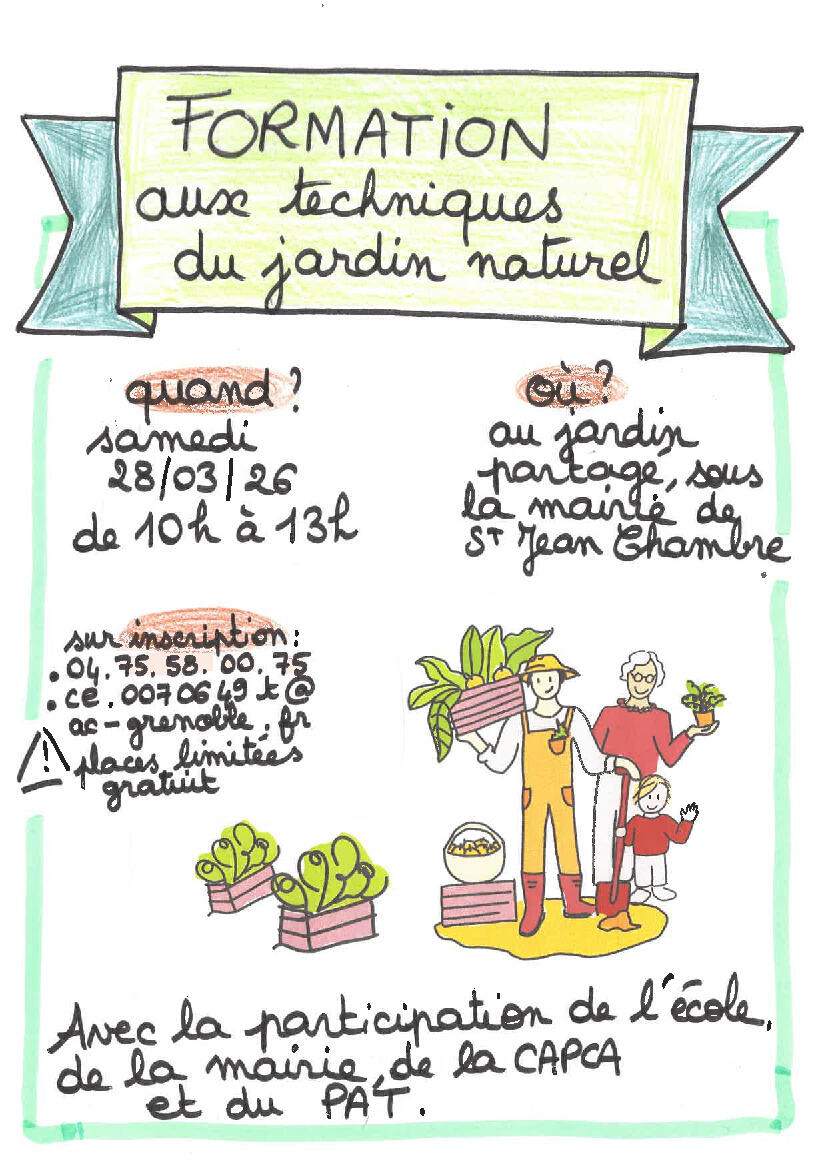 FORMATION
aux techniques
du jardin naturel
quand ?
samedi
28/03/26
de 10h à 13h
où ?
au jardin
partagé, sous
la mairie de
ST Jean Chambre
sur inscription :
. 04. 75. 58. 00. 75
. ce. 0070649 t @
ac-grenoble. fr
places limitées
gratuit
Avec la participation de l'école,
de la mairie, de la CAPCA
et du PAT.